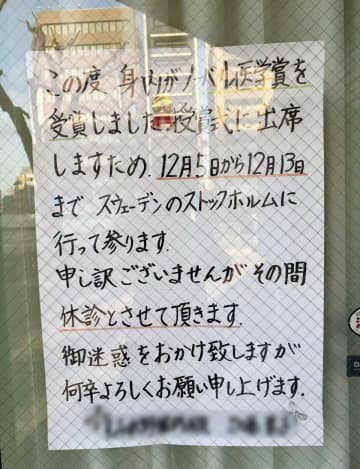 この度 身内がノーベル医学賞を
受賞しました。授賞式に出席
しますため、12月5日から12月13日
まで スウェーデンのストックホルムに
行って参ります。
申し訳ございませんが その間
休診とさせて頂きます。
御迷惑をおかけ致しますが
何卒よろしくお願い申し上げます。